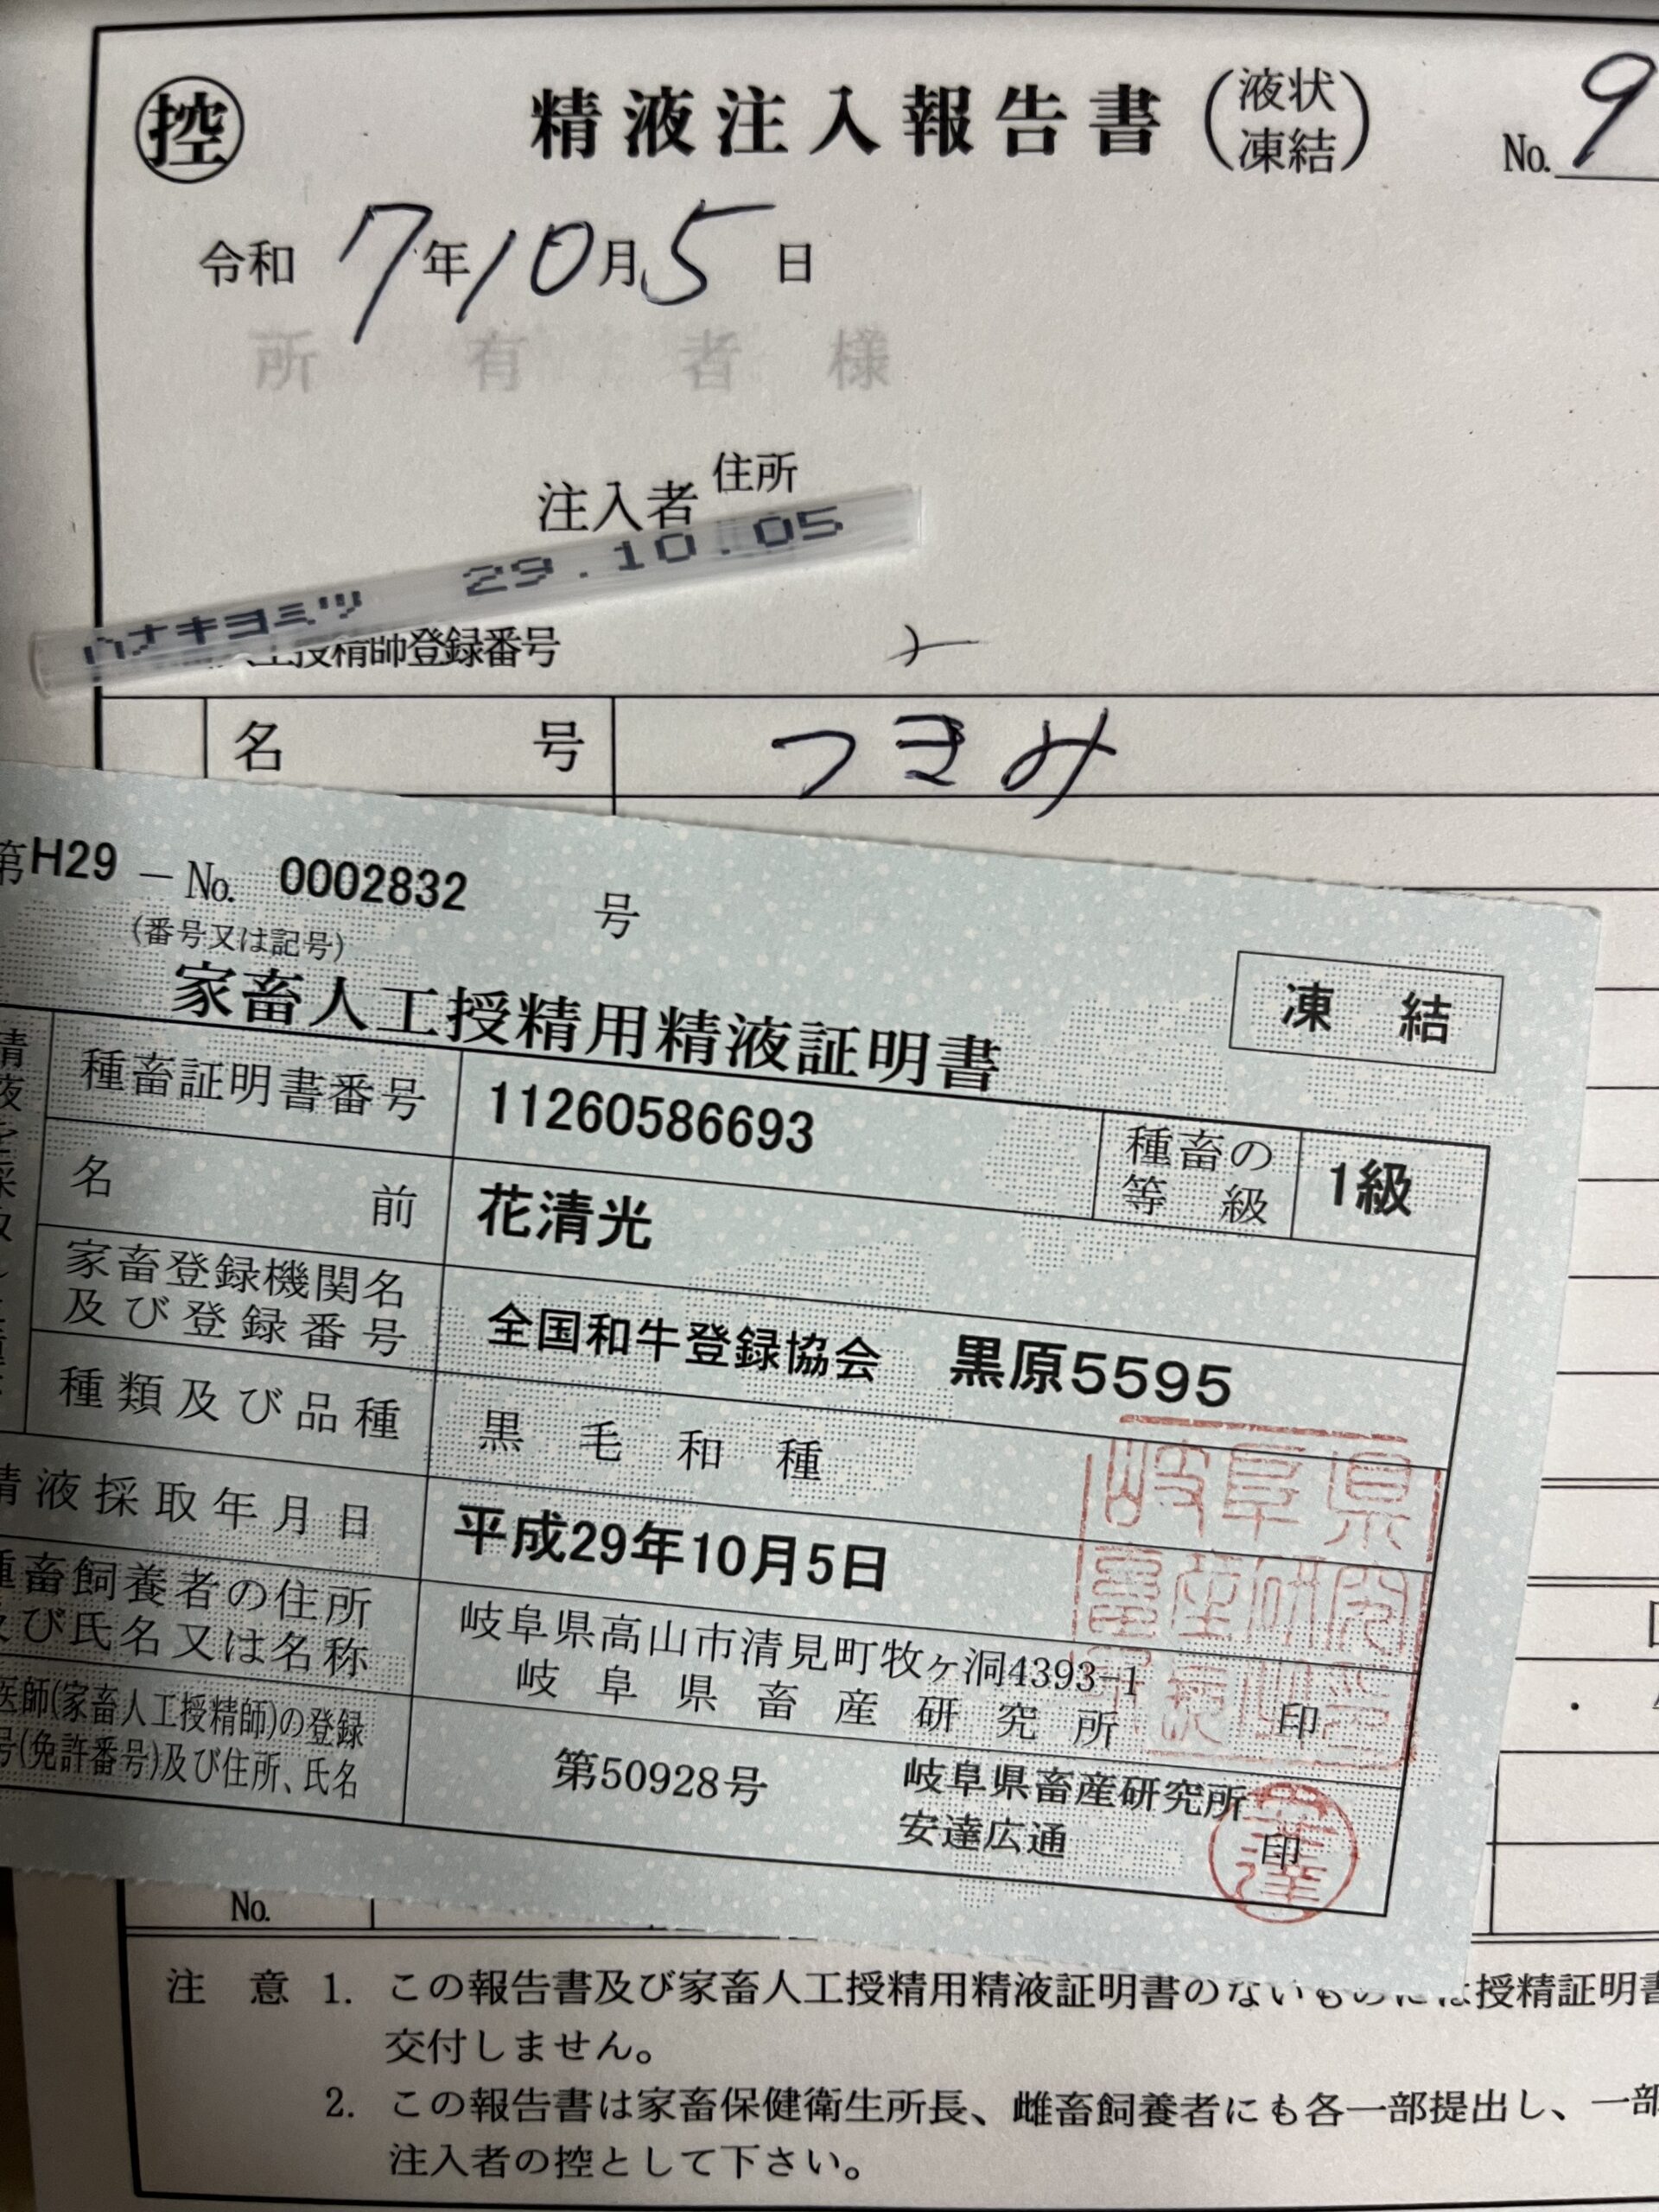 控
精液注入報告書(液状 凍結) No. 9
令和 7年10月5日
所有者様
注入者 住所
ハナキヨミツ 29.10.05
授精師登録番号
名号 つきみ
第H29-No. 0002832 号
(番号又は記号)
家畜人工授精用精液証明書 凍結
種畜証明書番号 11260586693 種畜の等級 1級
名前 花清光
家畜登録機関名
及び登録番号 全国和牛登録協会 黒原5595
種類及び品種 黒毛和種
精液採取年月日 平成29年10月5日
種畜飼養者の住所 岐阜県高山市清見町牧ヶ洞4393-1
及び氏名又は名称 岐阜県畜産研究所 印
医師(家畜人工授精師)の登録 第50928号 岐阜県畜産研究所
号(免許番号)及び住所、氏名 安達広通 印
No.
注意 1. この報告書及び家畜人工授精用精液証明書のないものには授精証明書
交付しません。
2. この報告書は家畜保健衛生所長、雌畜飼養者にも各一部提出し、一部
注入者の控として下さい。